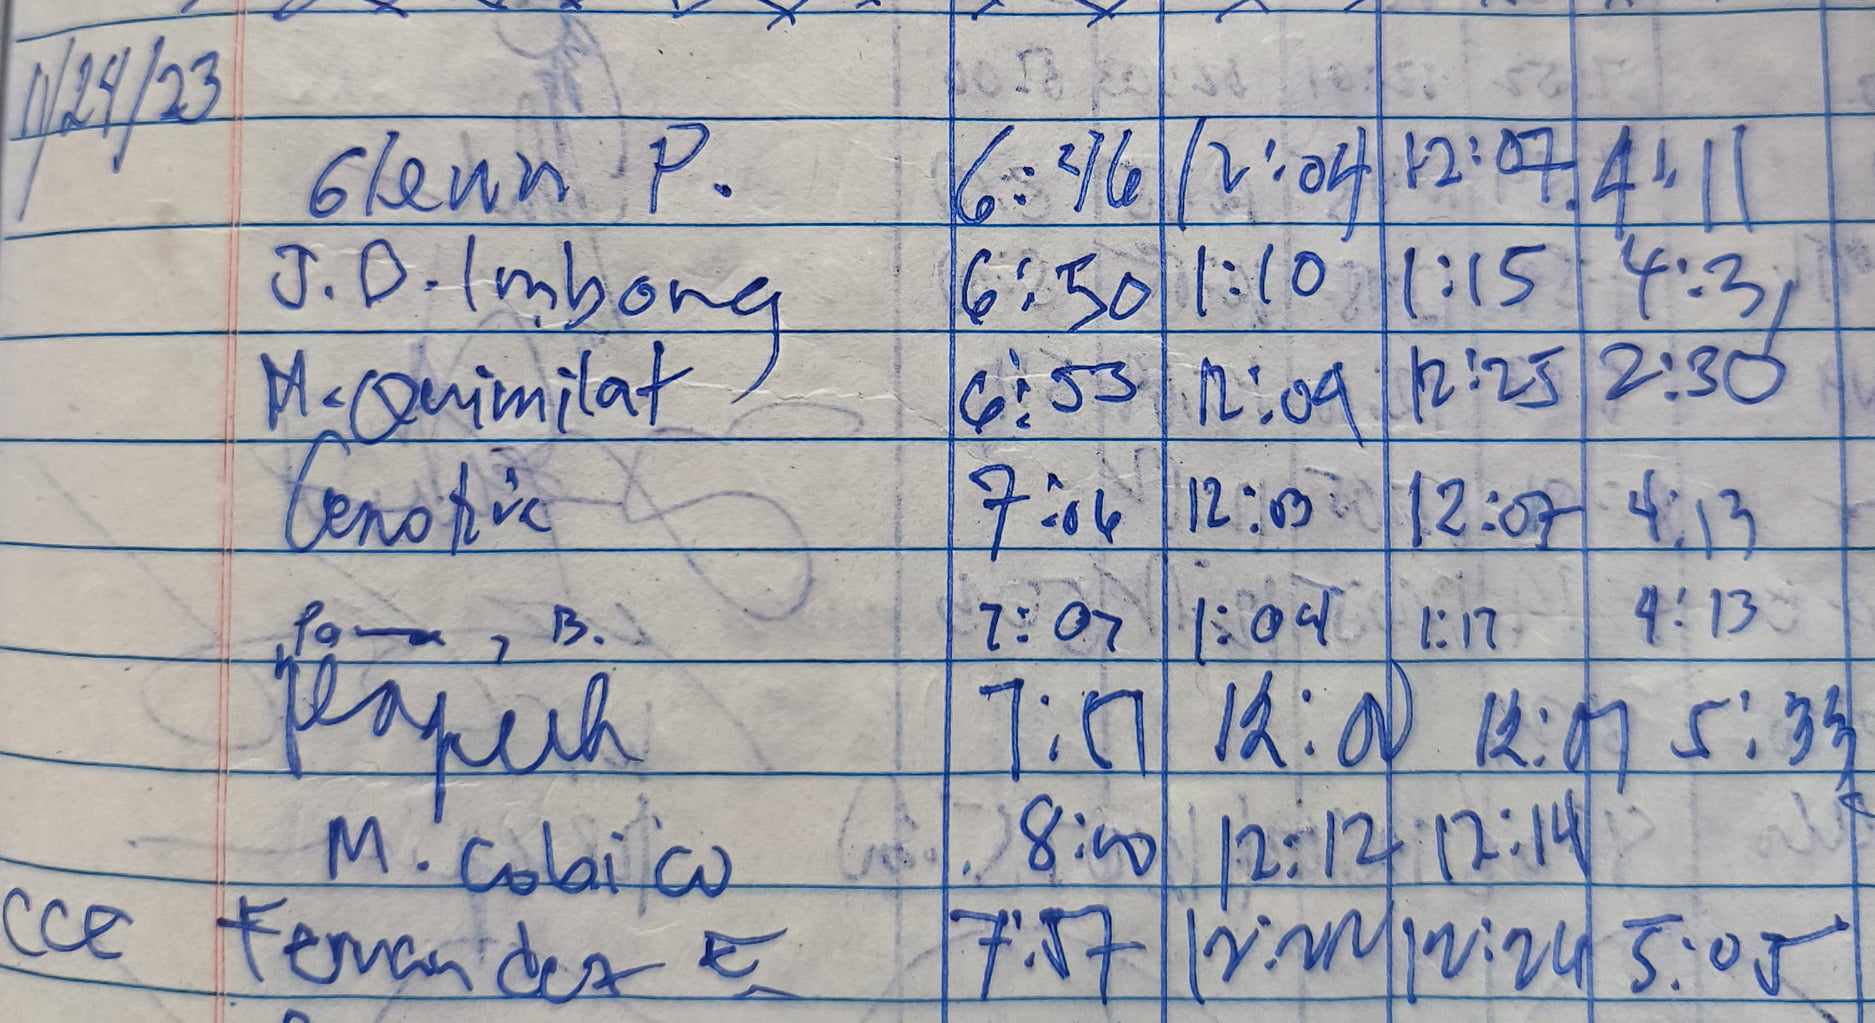 11/24/23
Glenn P. 6:46 12:04 12:07 4:11
J.D. Imbong 6:50 1:10 1:15 4:31
M. Quimilat 6:53 12:09 12:25 2:30
7:06 12:03 12:07 4:13
, B. 7:07 1:04 1:17 4:13
7:17 12:07 5:33
M. Cabico 8:00 12:12 12:14
CCE Fernandez E 7:57 12:22 12:24 5:05